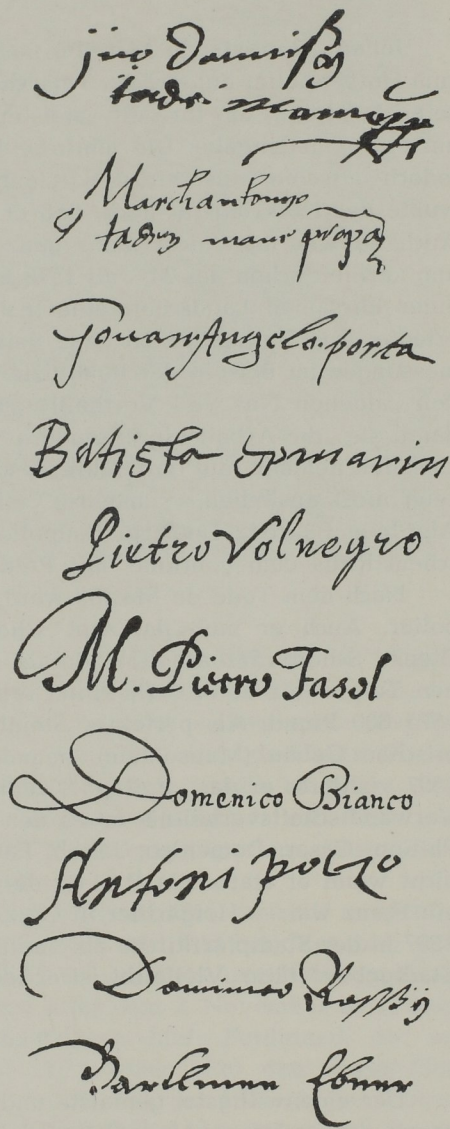 tadei
Marchantonyo
tadey mano propa
Jouan.Angelo.porta
Batista de marin
Pietro Volnegro
M. Pietro Fasol
Domenico Bianco
Antoni pozzo
Dominico Rossy
Bartlmee Ebner